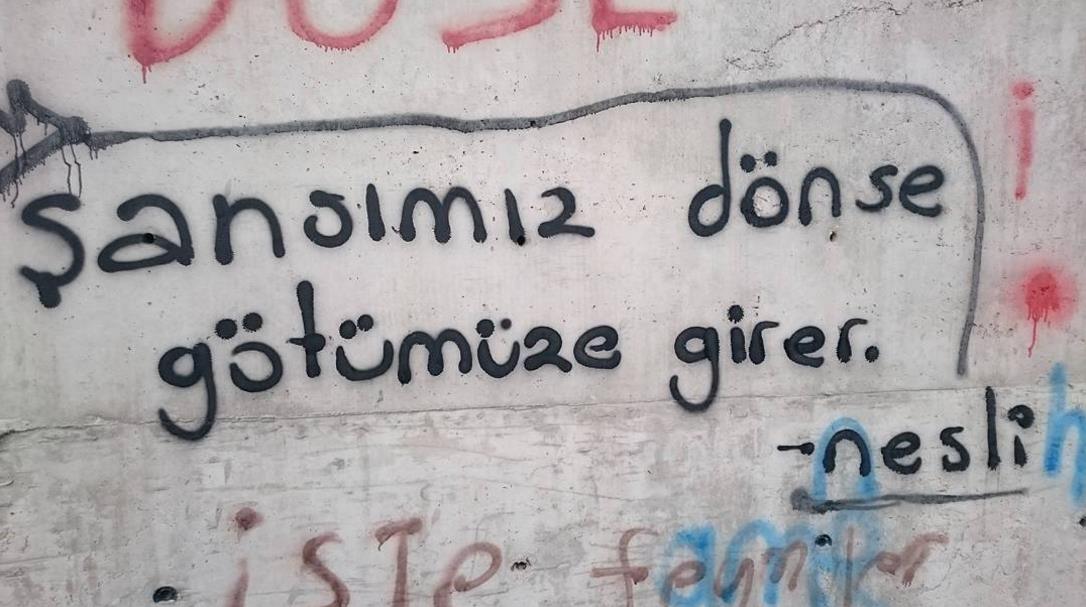 şansımız dönse
götümüze girer.
-nesli
işte